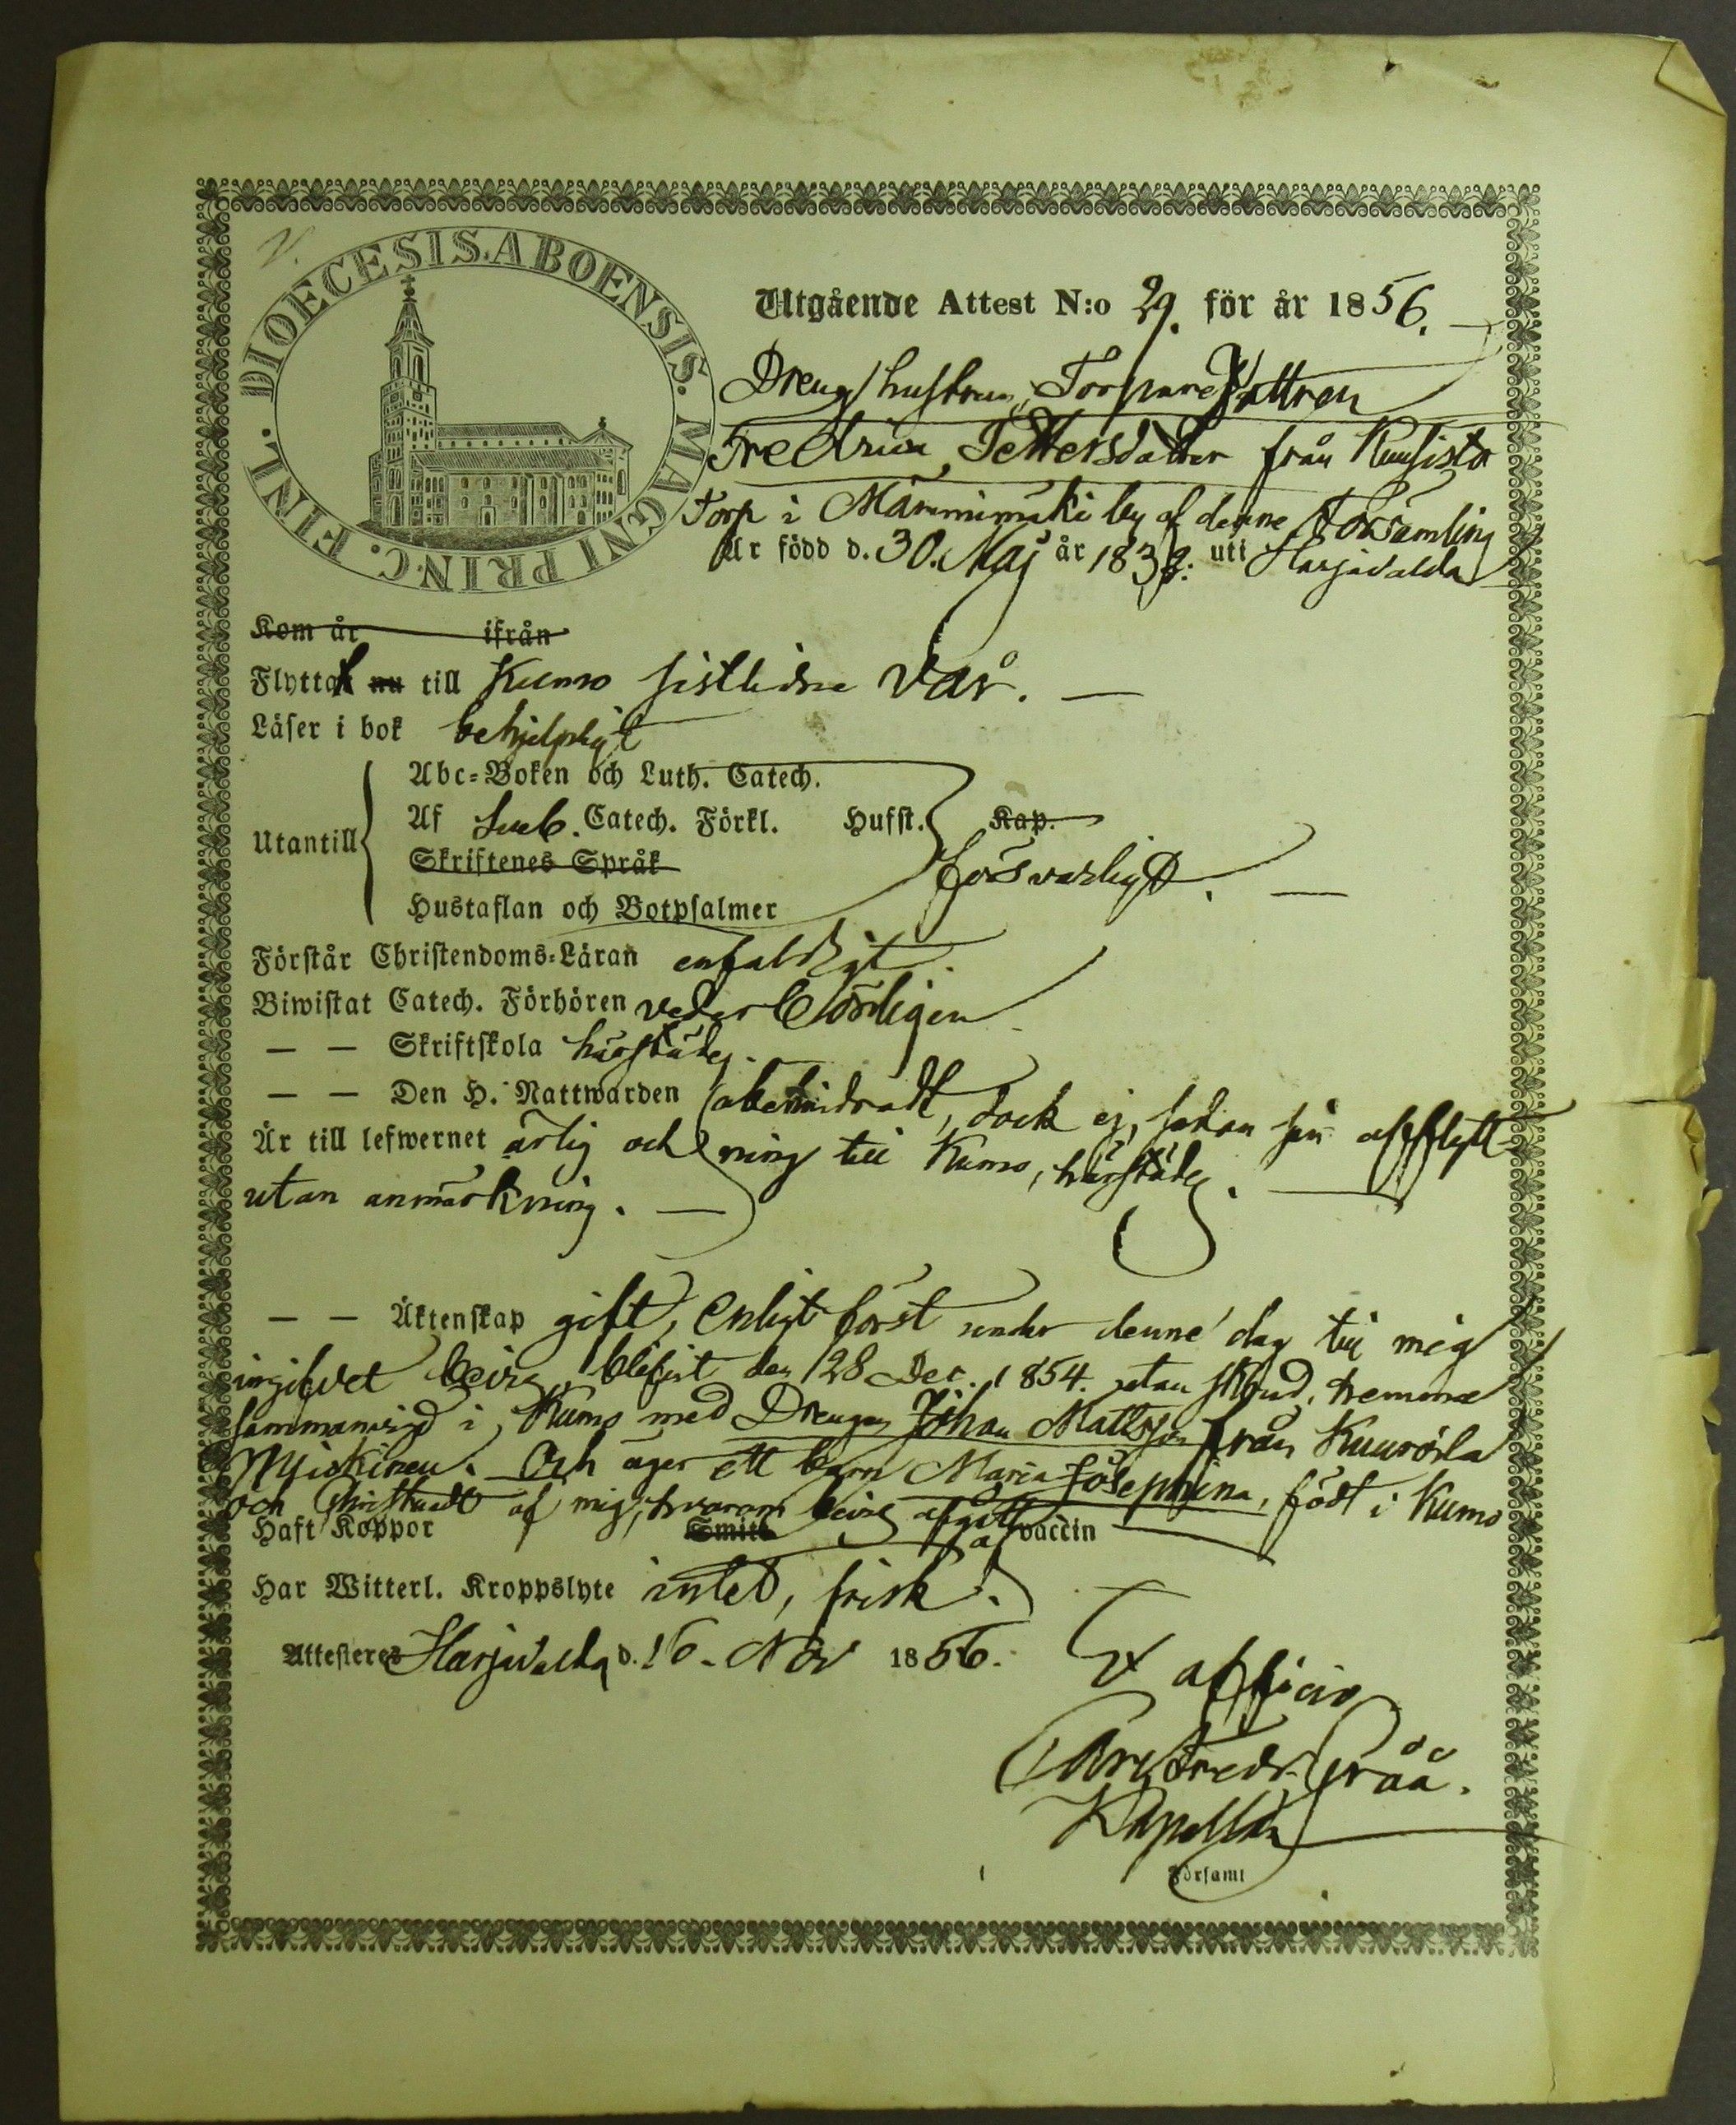 DIOECESIS. ABOENSIS. MAGNI PRINC. FINL.
Utgående Attest N:o 29. för år 1856.
Dreng hustrun, Torpare dottren
Fredrica Pettersdotter från Kuusisto
Torp i Mämmimäki by af denne Församling
Är född d. 30. Maj år 183 uti Harjavalda
Kom år ifrån
Flyttat nu till Kumo sistlidne Vår.
Läser i bok behjelpligt
Abc-Boken och Luth. Catech.
Utantill Af Sveb. Catech. Förkl. Hufst. Kap.
Skriftenes Språk försvarligt.
Hustaflan och Botpsalmer
Förstår Christendoms-Läran enfaldigt
Biwistat Catech. Förhören vederbörligen
— — Skriftskola härstädes.
— — Den H. Nattwarden obehindradt, dock ej, sedan sin afflytt-
Är till lefwernet ärlig och ning till Kumo, härstädes.
utan anmärkning.
— — Äktenskap gift, enligt först under denne dag till mig
ingifvet bevis, blifvit den 28 Dec. 1854. utan
sammanvigd i Kumo med Drengen Johan Mattsson från Kuurola
Och äger ett barn Maria Josephina, född i Kumo
och Christnadt af mig, hvarom bevis afgått
Haft Koppor Smitt af vaccin
Har Witterl. Kroppslyte intet, frisk.
Attesteres Harjavalda d. 16. Nov 1856.
Ex officio
Carl Fredr. Gråå.
Kapellan
Församl